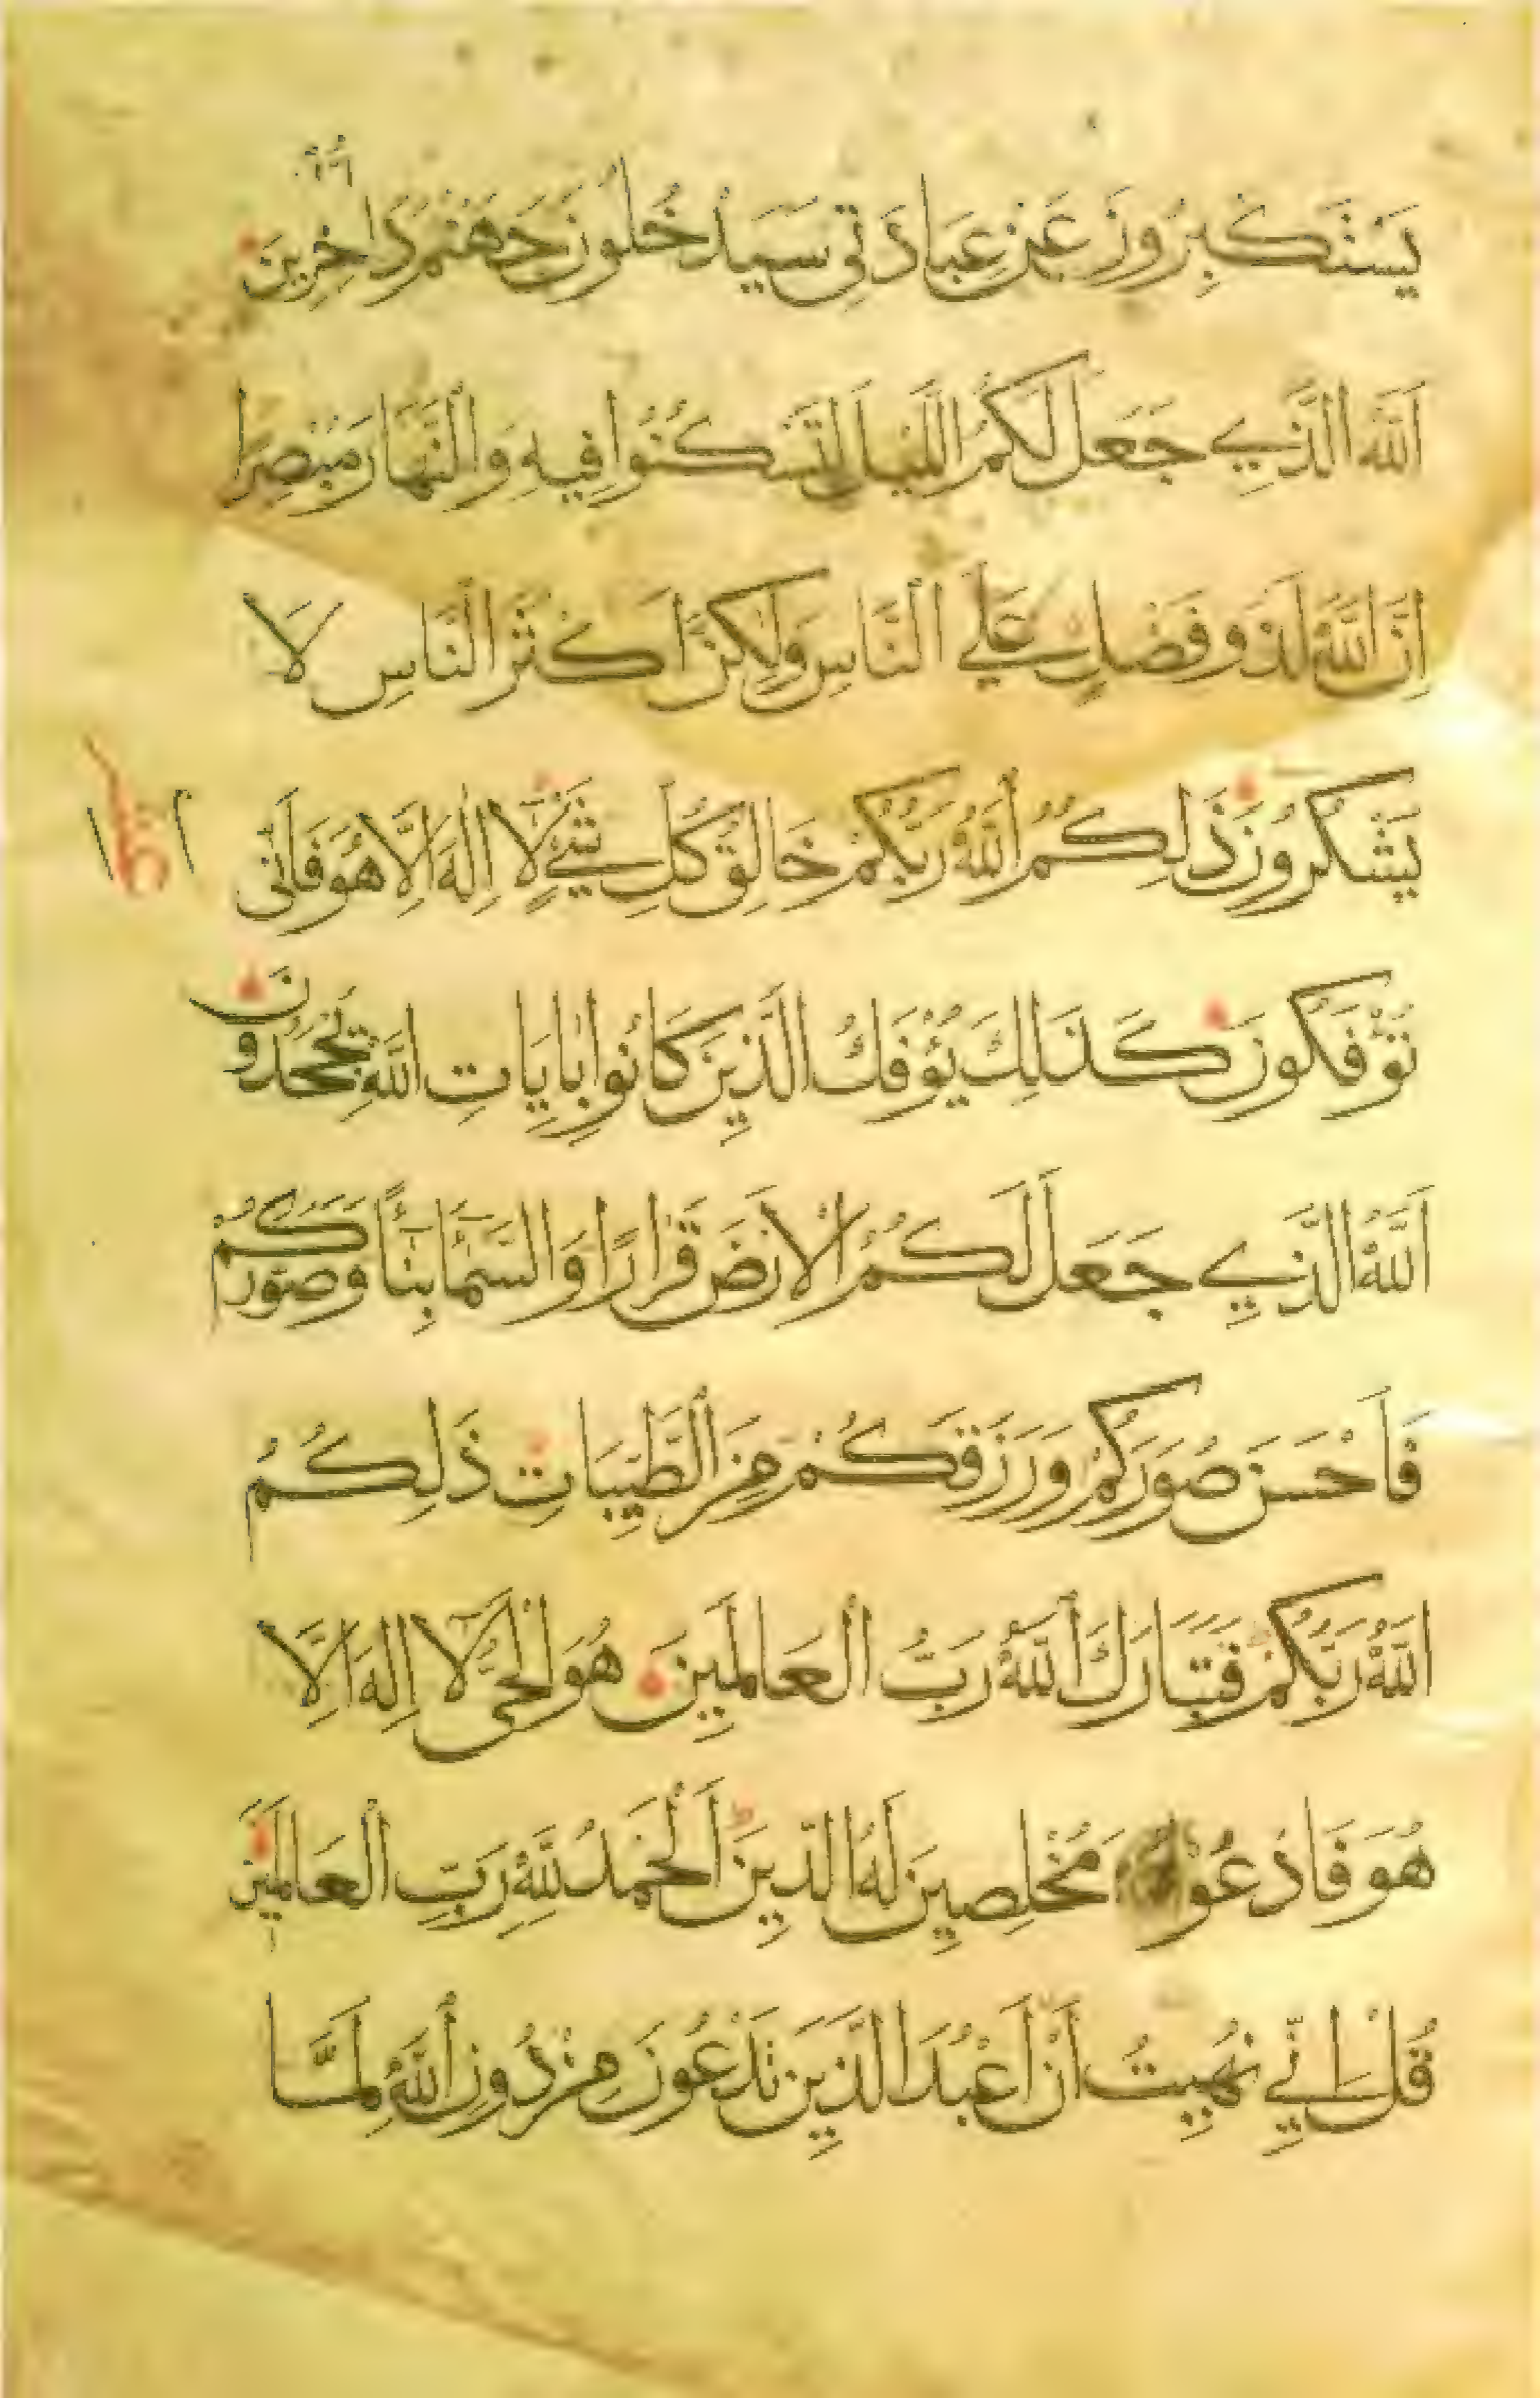 يَسْتَكْبِرُونَ عَنْ عِبَادَتِي سَيَدْخُلُونَ جَهَنَّمَ دَاخِرِينَ
اَللّٰهُ الَّذِي جَعَلَ لَكُمُ اللَّيْلَ لِتَسْكُنُوا فِيهِ وَالنَّهَارَ مُبْصِرًا
اِنَّ اللّٰهَ لَذُو فَضْلٍ عَلَى النَّاسِ وَلٰكِنَّ اَكْثَرَ النَّاسِ لَا
يَشْكُرُونَ ذٰلِكُمُ اللّٰهُ رَبُّكُمْ خَالِقُ كُلِّ شَيْءٍ لَا اِلٰهَ اِلَّا هُوَ فَاَنّٰى
تُؤْفَكُونَ كَذٰلِكَ يُؤْفَكُ الَّذِينَ كَانُوا بِاٰيَاتِ اللّٰهِ يَجْحَدُونَ
اَللّٰهُ الَّذِي جَعَلَ لَكُمُ الْاَرْضَ قَرَارًا وَالسَّمَاءَ بِنَاءً وَصَوَّرَكُمْ
فَاَحْسَنَ صُوَرَكُمْ وَرَزَقَكُمْ مِنَ الطَّيِّبَاتِ ذٰلِكُمُ
اللّٰهُ رَبُّكُمْ فَتَبَارَكَ اللّٰهُ رَبُّ الْعَالَمِينَ هُوَ الْحَيُّ لَا اِلٰهَ اِلَّا
هُوَ فَادْعُوهُ مُخْلِصِينَ لَهُ الدِّينَ اَلْحَمْدُ لِلّٰهِ رَبِّ الْعَالَمِينَ
قُلْ اِنِّي نُهِيتُ اَنْ اَعْبُدَ الَّذِينَ تَدْعُونَ مِنْ دُونِ اللّٰهِ لَمَّا